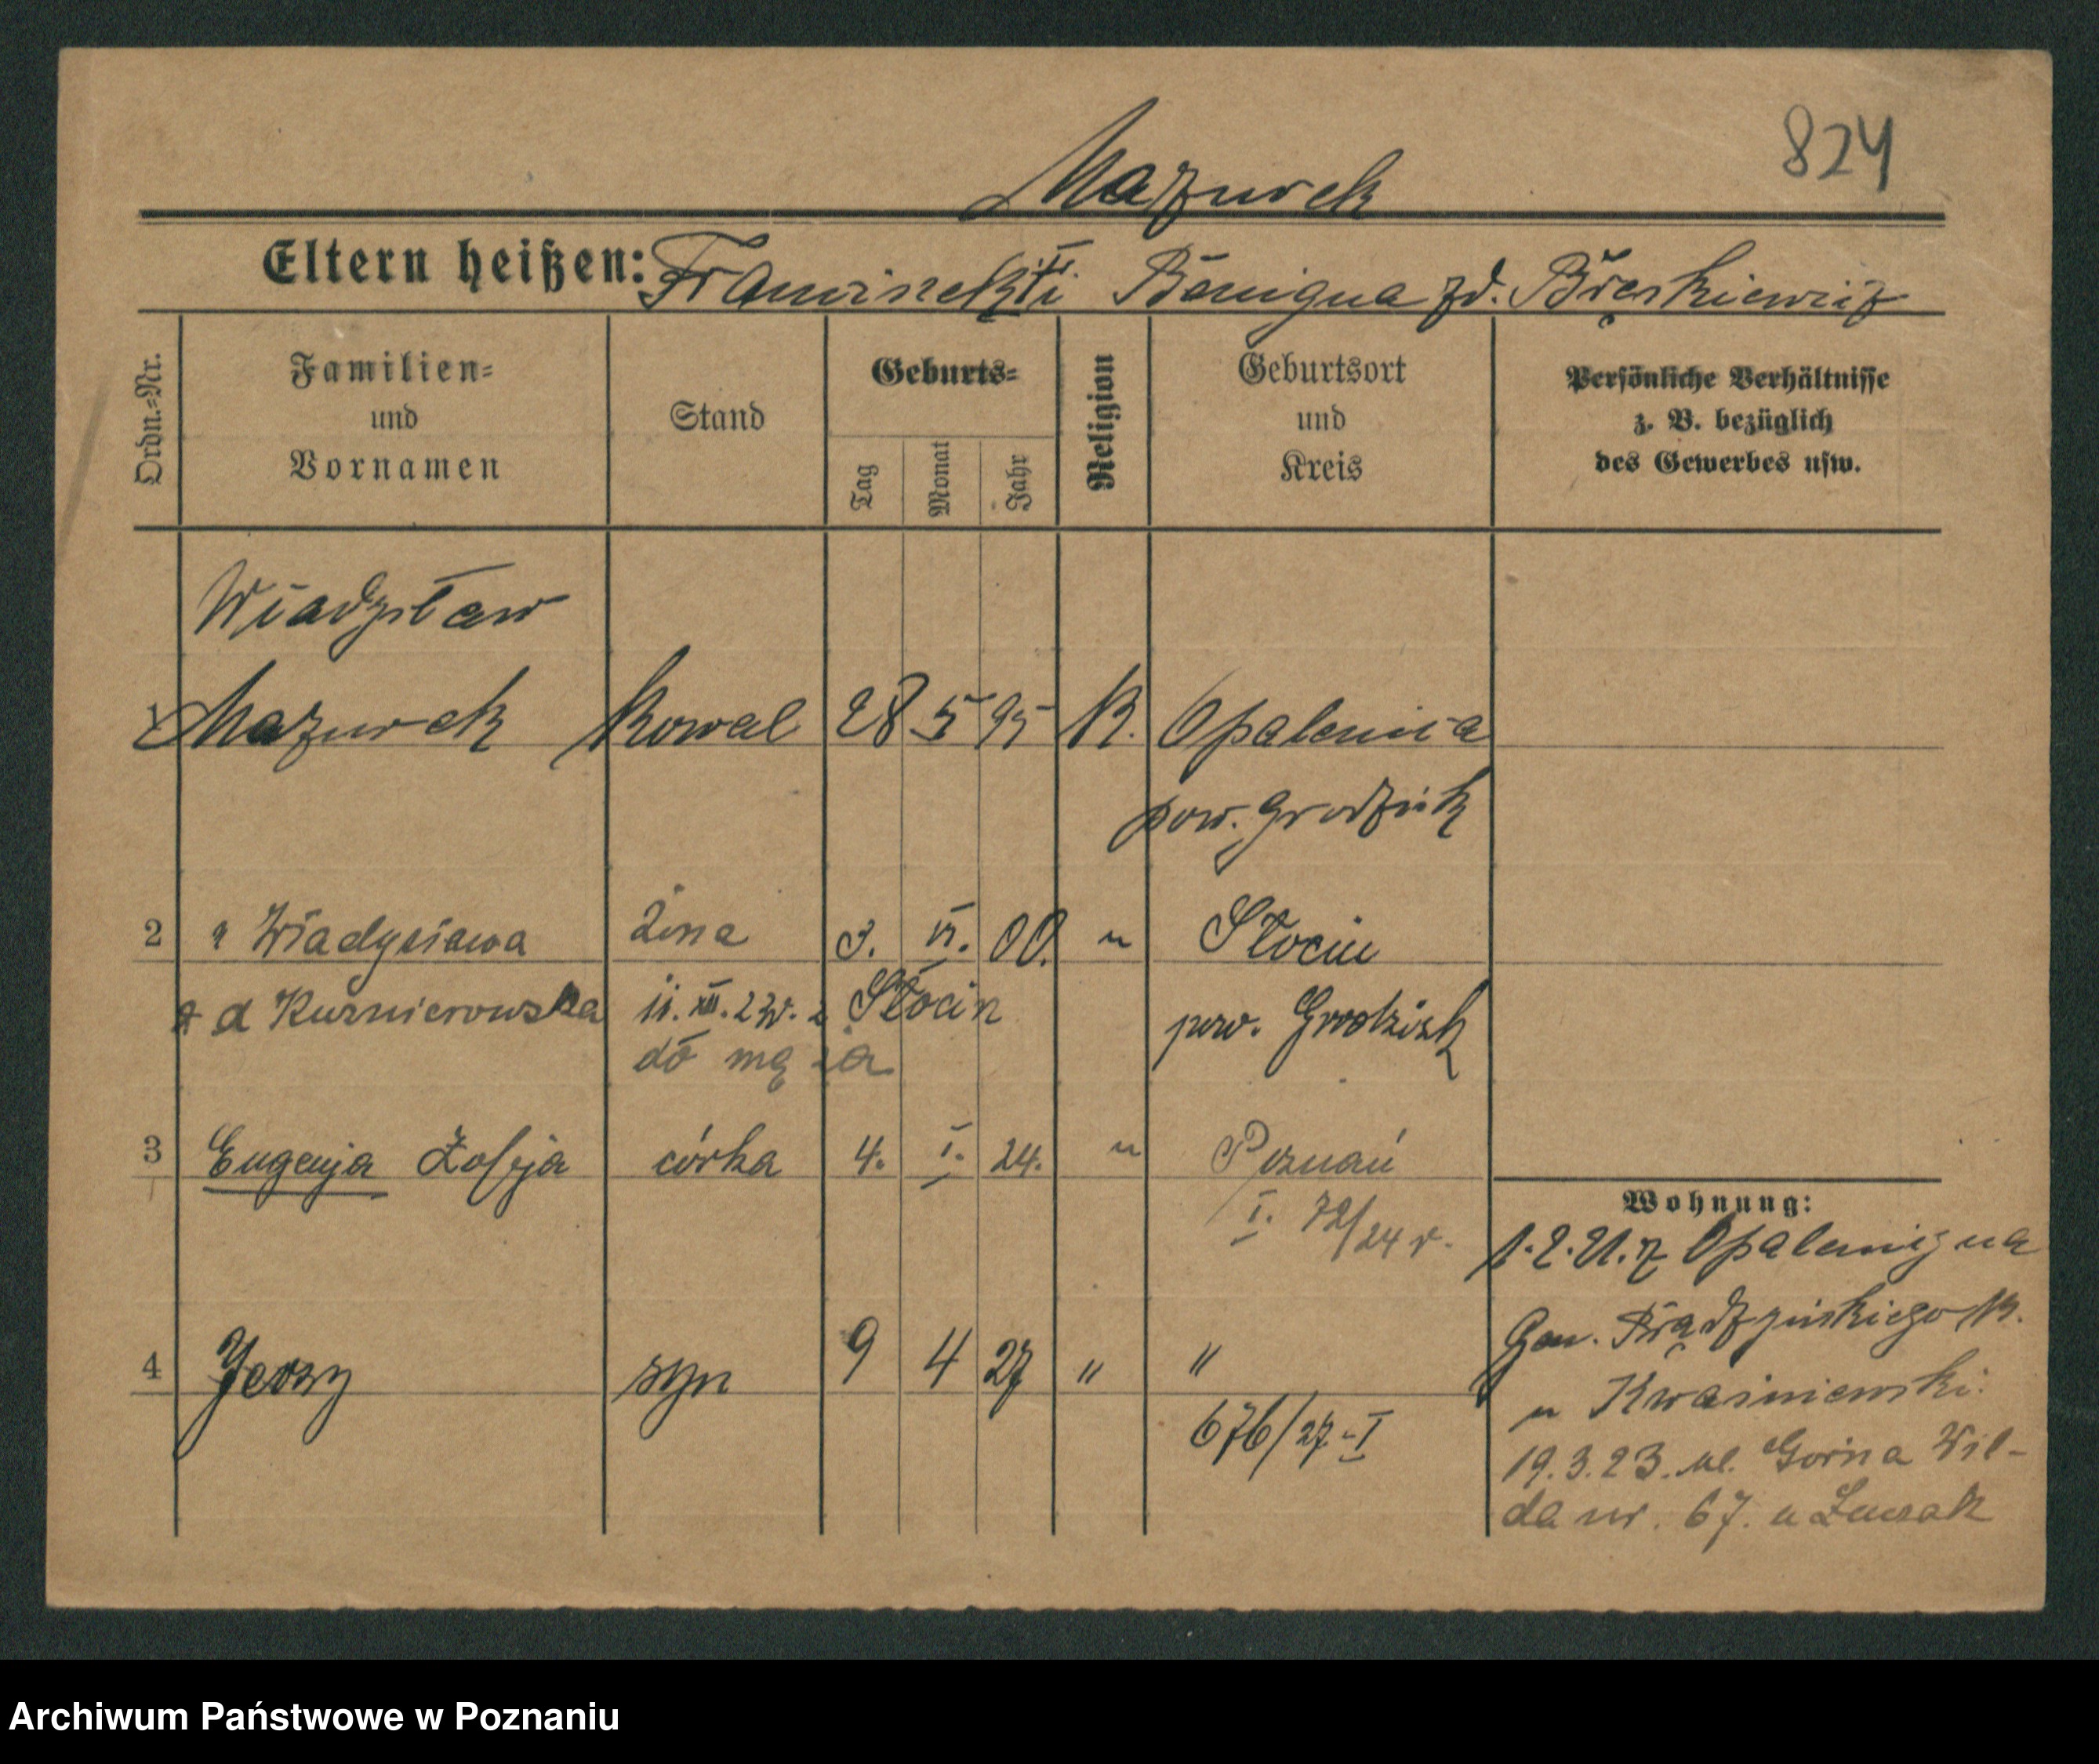 824
Mazurek
Eltern heißen: Franciszek i Benigna zd.
Ordn.=Nr.
Familien=
und
Vornamen
Stand
Geburts=
Tag
Monat
Jahr
Religion
Geburtsort
und
Kreis
Persönliche Verhältnisse
z. B. bezüglich
des Gewerbes usw.
Władysław
1 Mazurek kowal 28 5 95 K. Opalenica
pow. Grodzisk
2 " Władysława żona 3. VI. 00. " Słocin
z d Kuznierowska 11. XII. 22r. z Słocin pow. Grodzisk
do męża
3 Eugenja Zofja córka 4. I. 24. " Poznań
I. 72/24 r.
4 Jerzy syn 9 4 27 " "
676/27-I
Wohnung:
1.2.21. z Opalenicy na
Gen. Prądzyńskiego
u Kwaśniewski.
19.3.23. ul. Gorna Wil-
da nr. 67. u
Archiwum Państwowe w Poznaniu